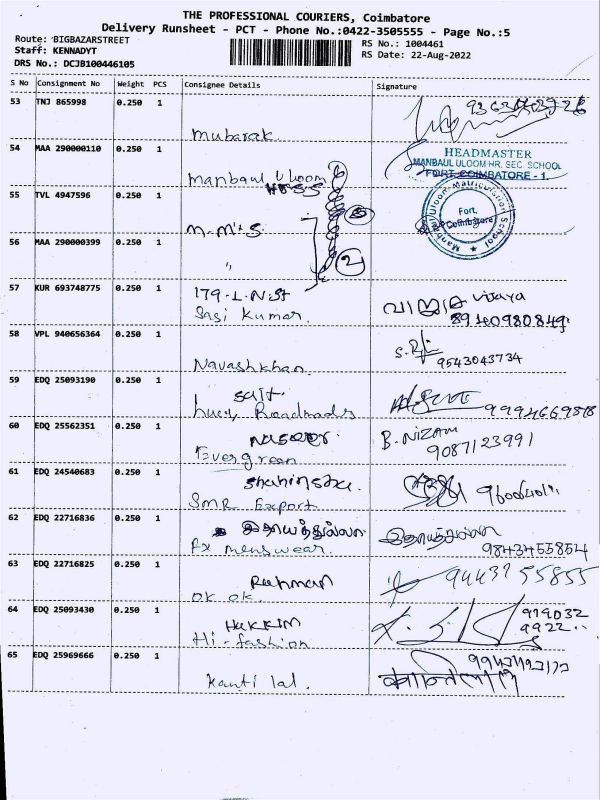 THE PROFESSIONAL COURIERS, Coimbatore
Delivery Runsheet - PCT - Phone No.:0422-3505555 - Page No.:5
Route: 'BIGBAZARSTREET
Staff: KENNADYT
DRS No.: DCJB100446105
RS No.: 1004461
RS Date: 22-Aug-2022
S No Consignment No Weight PCS Consignee Details Signature
53 TNJ 865998 0.250 1
Mubarak
54 MAA 290000110 0.250 1
Manbaul Uloom
HEADMASTER
MANBAUL ULOOM HR. SEC. SCHOOL
FORT, COIMBATORE - 1.
55 TVL 4947596 0.250 1
M.M.H.S.
Manbaul Uloom Matriculation School
Fort,
Coimbatore
56 MAA 290000399 0.250 1
"
2
57 KUR 693748775 0.250 1
179-L.N.St
Sasi Kumar. Vijaya
8940980849
58 VPL 940656364 0.250 1
Navashkhan. 9543043734
59 EDQ 25093190 0.250 1
sait
9994669878
60 EDQ 25562351 0.250 1
Evergreen
B. NIZAM
9087123991
61 EDQ 24540683 0.250 1
SMR Export
62 EDQ 22716836 0.250 1
Fx menswear. 9843455854
63 EDQ 22716825 0.250 1
Rahman
OK OK. 9443755855
64 EDQ 25093430 0.250 1
HAKKIM
Hi-fashion
919032
9922
65 EDQ 25969666 0.250 1
Kanti lal.